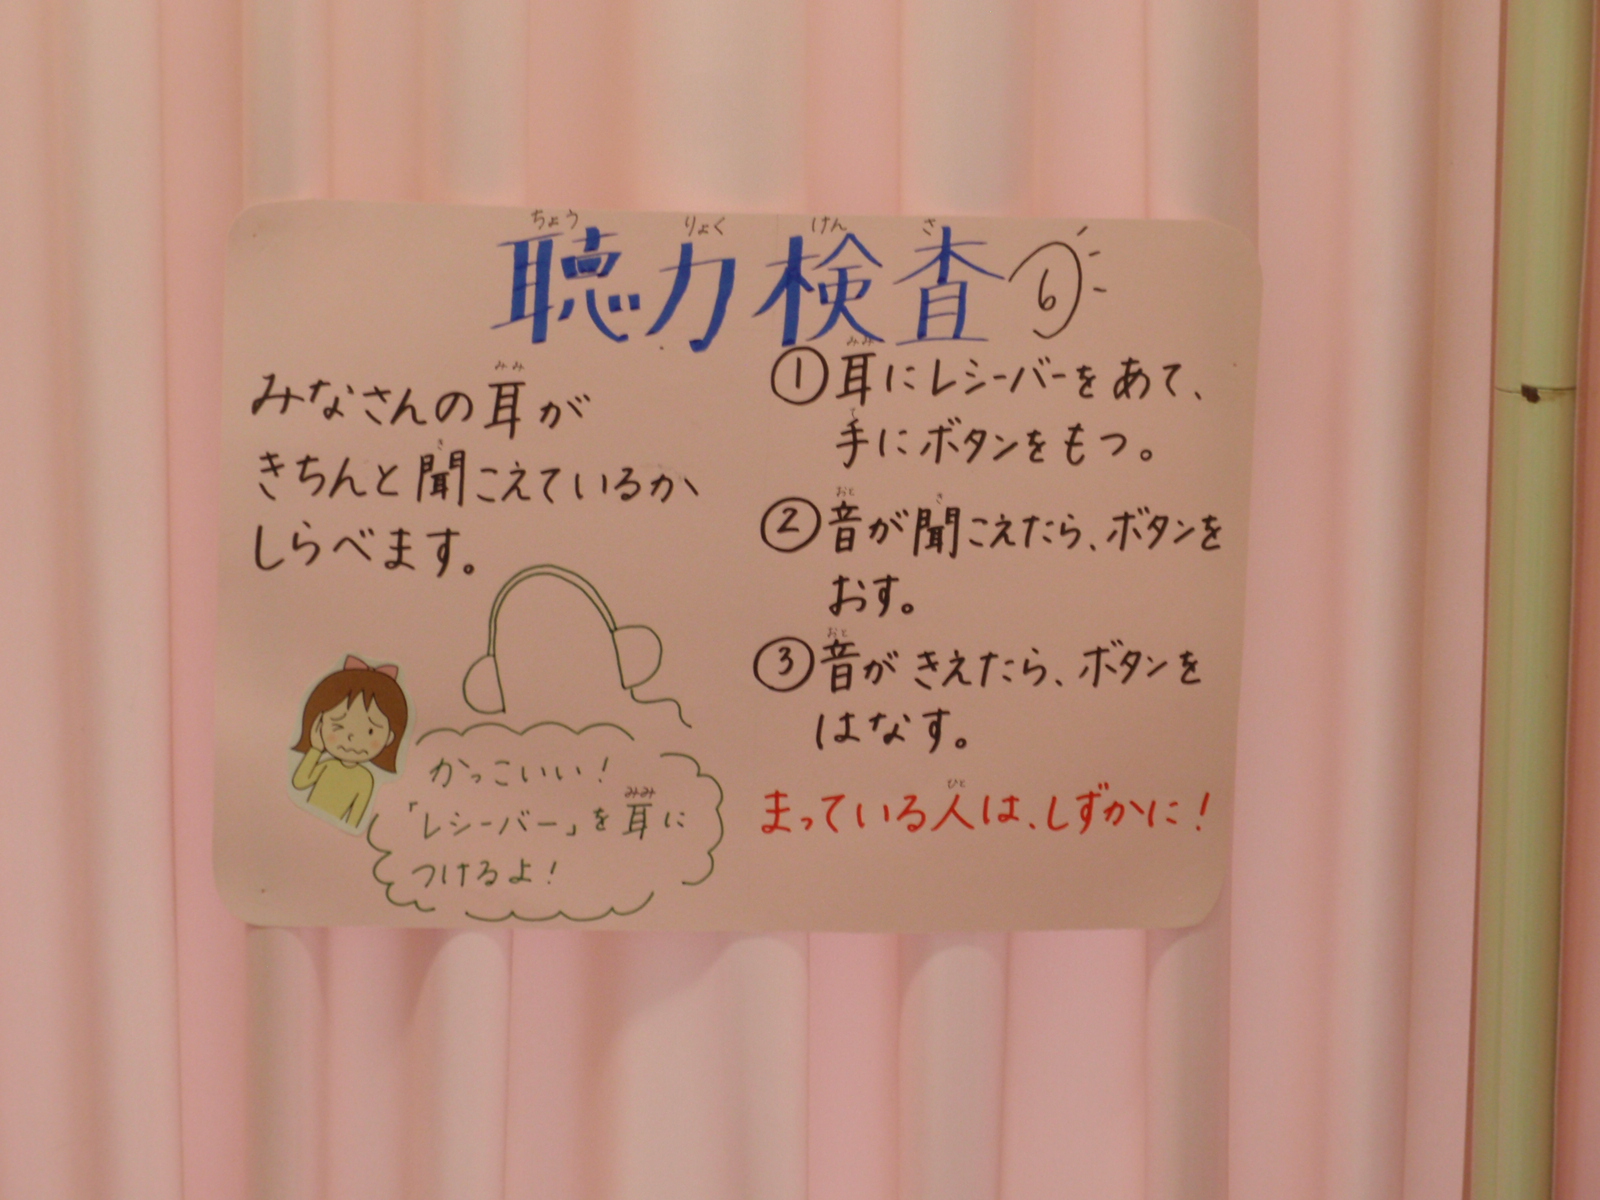 聴力検査
みなさんの耳が
きちんと聞こえているか
しらべます。
かっこいい!
「レシーバー」を耳に
つけるよ!
①耳にレシーバーをあて、
手にボタンをもつ。
②音が聞こえたら、ボタンを
おす。
③音がきえたら、ボタンを
はなす。
まっている人は、しずかに!